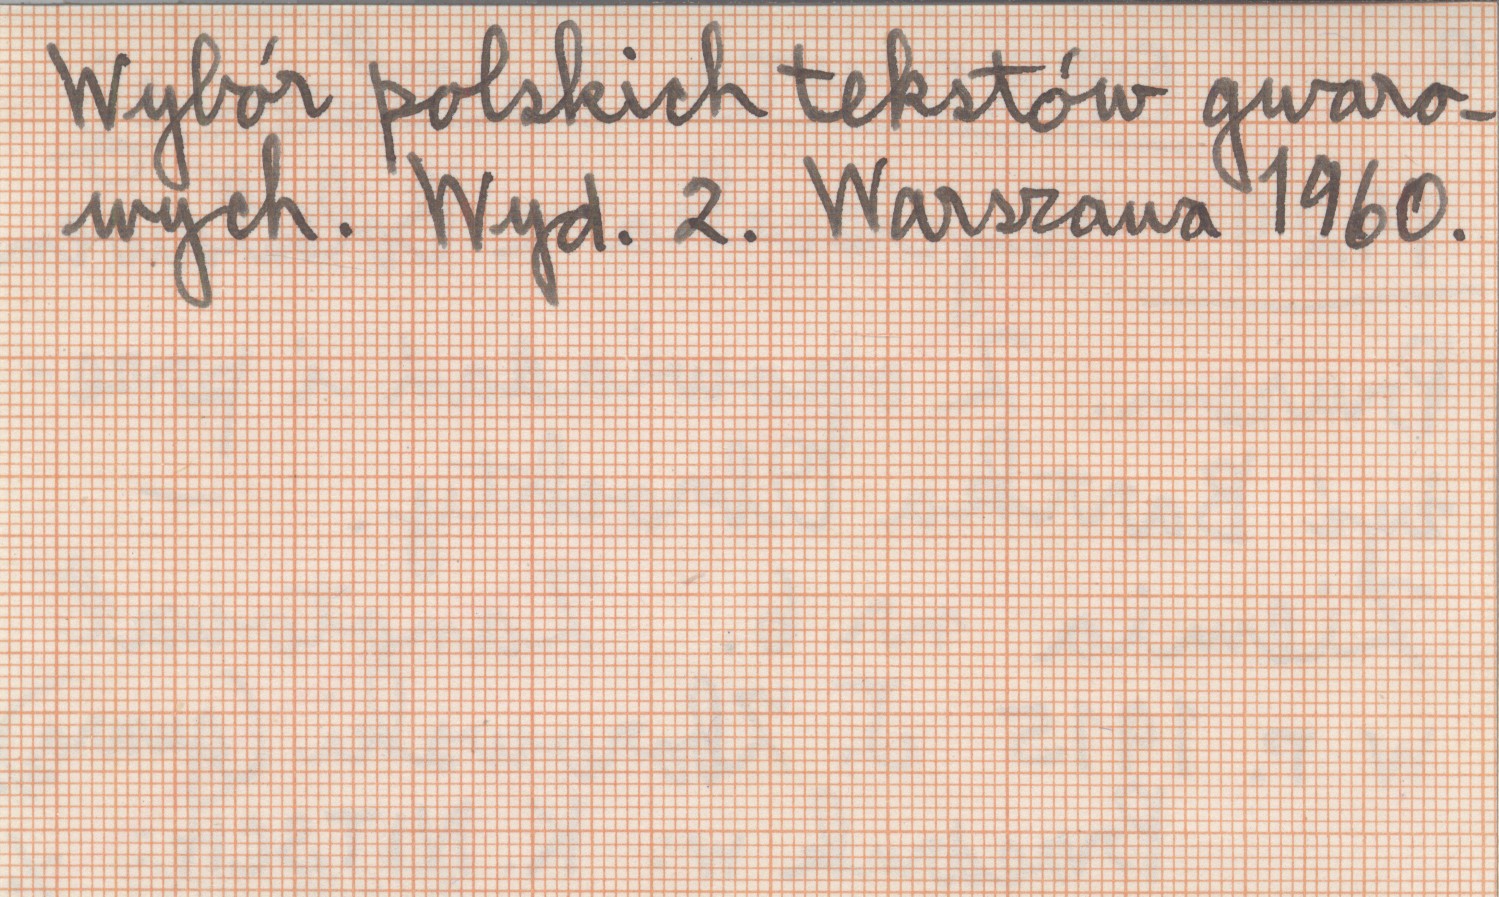 Wybór polskich tekstów gwaro-
wych. Wyd. 2. Warszawa 1960.